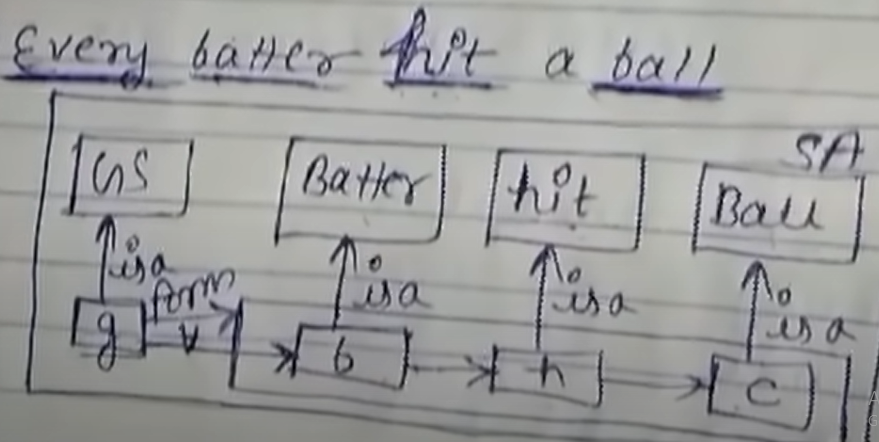 Every batter hit a ball
SA
GS Batter hit Ball
isa isa isa isa
form
∀
g b h c